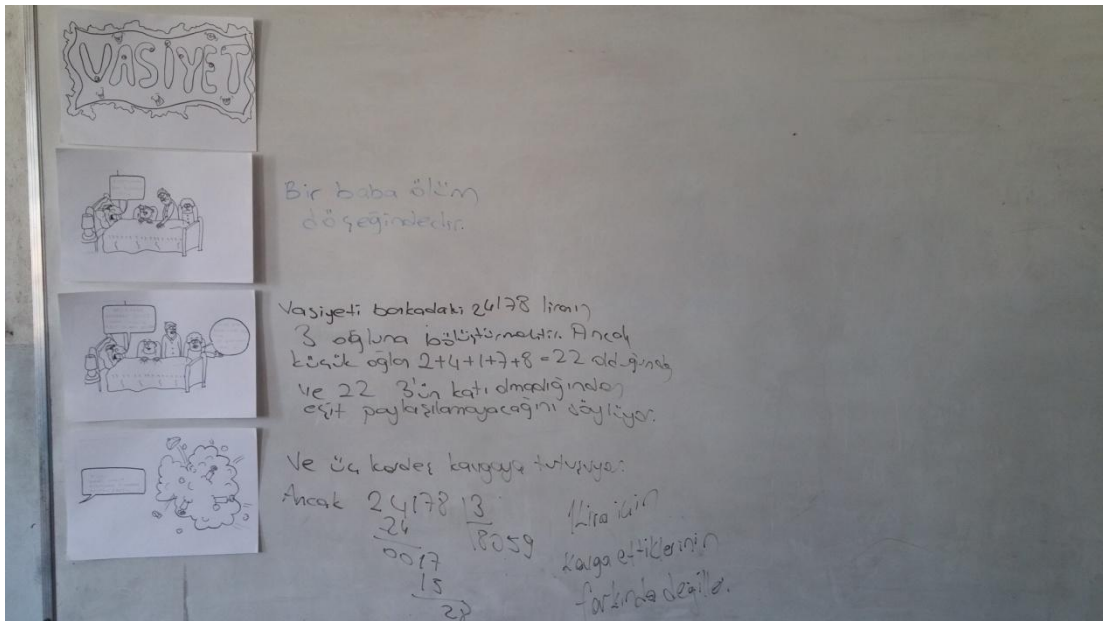 VASİYET
Bir baba ölüm
döşeğindedir.
Vasiyeti bankadaki 24178 liranın
3 oğluna bölüştürmektir. Ancak
küçük oğlan 2+4+1+7+8=22 olduğundan
ve 22 3'ün katı olmadığından
eşit paylaşılamayacağını söylüyor.
Ve üç kardeş kavgaya tutuşuyor.
Ancak 24178 3
24 8059
0017
15
28
1 lira için
kavga ettiklerinin
farkında değiller.